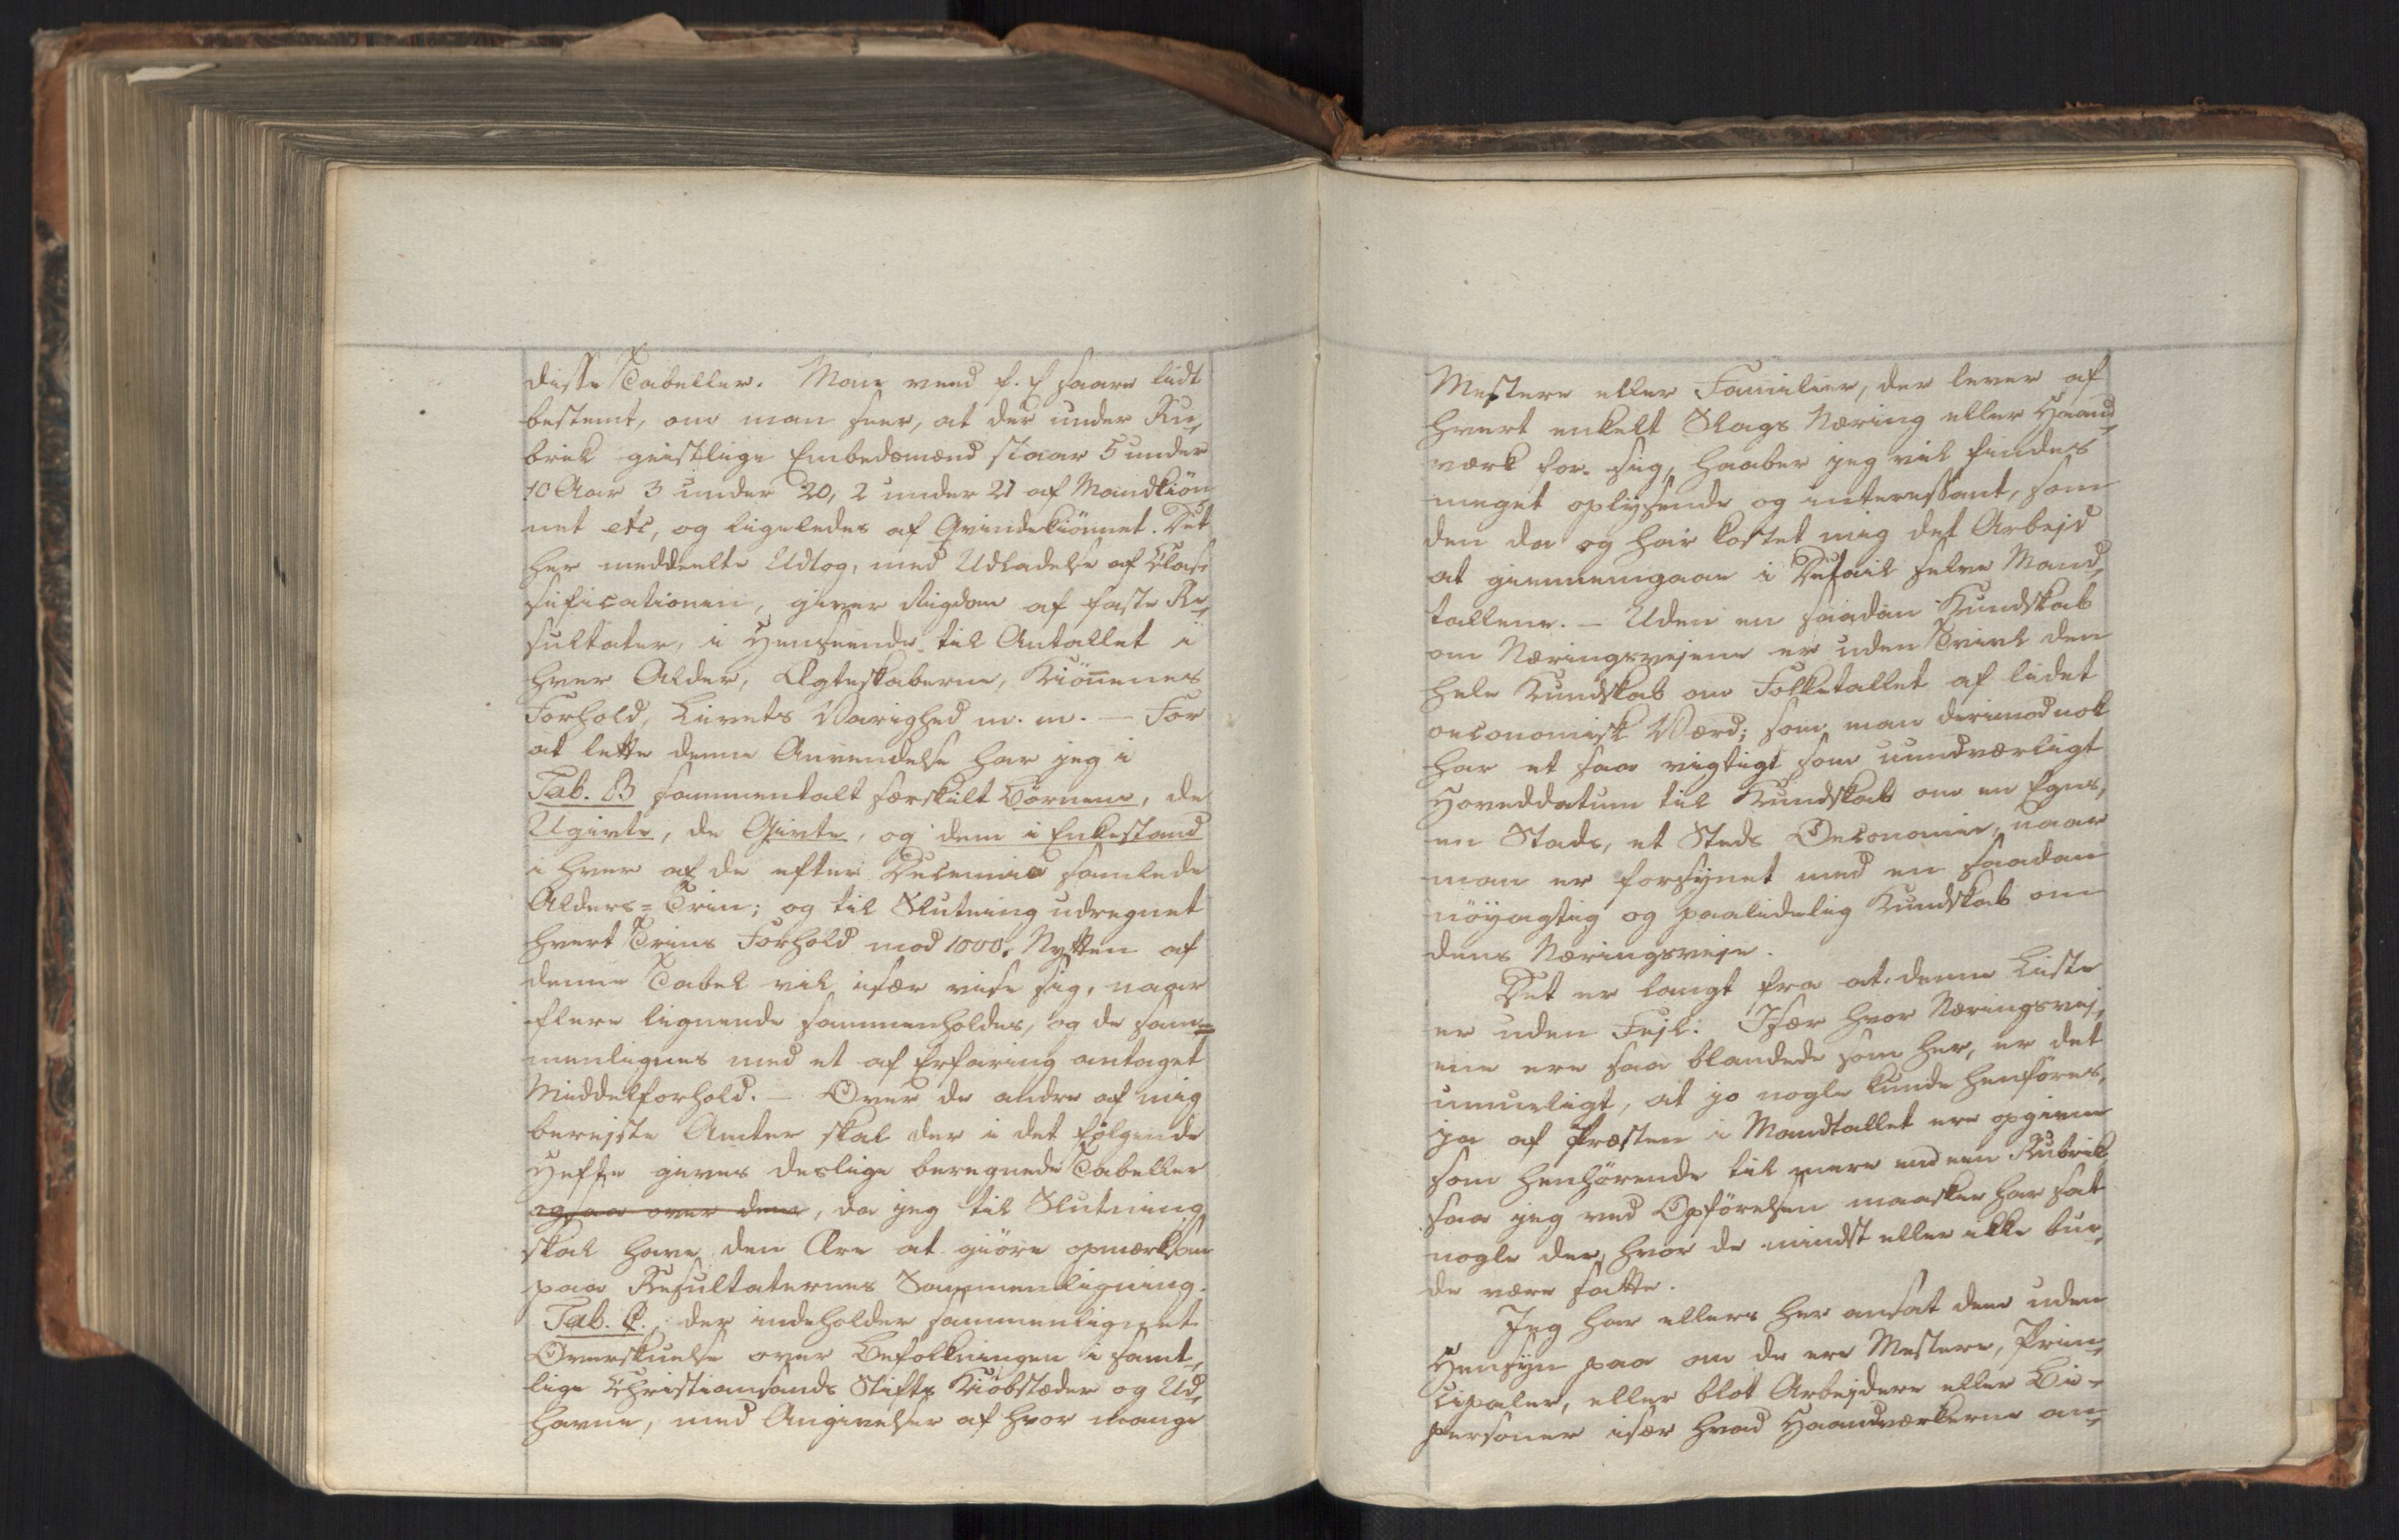 disse Tabeller. Man veed f. E saare lidt
bestemt, om man seer, at der under Ru,
brik geistlige Embedsmænd staar 5 under
10 Aar 3 under 20, 2 under 21 af Mandkiön
net etc, og ligeledes af Qvindekiönnet. Det
her meddeelte Udtog, med Udladelse af Clas
sificationen, giver Rigdom af faste Re,
sultater, i Henseende til Antallet i
hver Alder, Ægteskaberne, Kiönnenes
Forhold, Livets Varighed m. m. — For
at lette denne Anvendelse har jeg i
Tab. B sammentalt særskilt Börnene, de
Ugivte, de Givte, og dem i Enkestand
i hver af de efter Decennia samlede
Alders=Trin; og til Slutning udregnet
hvert Trins Forhold mod 1000. Nytten af
denne Tabel vil især vise sig, naar
flere lignende sammenholdes, og de sam=
menlignes med et af Erfaring antaget
Middelforhold. — Over de andre af mig
berejste Amter skal der i det fölgende
Hefte gives deslige beregnede Tabeller
ogsaa over dem, da jeg til Slutning
skal have den Ære at giöre opmærksom
paa Resultaternes Sammenligning.
Tab. C. der indeholder sammenlignet
Overskuelse over Befolkningen i samt,
lige Christiansands Stifts Kiöbstæder og Ud,
havne, med Angivelser af hvor mange
Mestere eller Familier, der lever af
hvert enkelt Slags Næring eller Haand,
værk for sig, haaber jeg vil findes
meget oplysende og interessant, som
den da og har kostet mig det Arbejd
at giennemgaae i Detail selve Mand,
tallene. — Uden en saadan Kundskab
om Næringsvejene er uden Tvivl den
hele Kundskab om Folketallet af lidet
oeconomisk Værd; som man derimod nok
har et saa vigtigt som uundværligt
Hoveddatum til Kundskab om en Egns,
en Stads, et Steds Oeconomie, naar
man er forsynet med en saadan
nöyagtig og paalidelig Kundskab om
dens Næringsveje.
Det er langt fra at denne Liste
er uden Fejl. Især hvor Næringsvej,
ene ere saa blandede som her, er det
umueligt, at jo nogle kunde henföres,
ja af Præsten i Mandtallet ere opgivne
som henhörende til mere end een Rubrik,
saa jeg ved Opförelsen maaskee har sat
nogle der, hvor de mindst eller ikke bur,
de være satte.
Jeg har ellers her ansat dem uden
Hensyn paa om de ere Mestere, Prin,
cipaler, eller blot Arbejdere eller Bi-
personer især hvad Haandværkerne an,